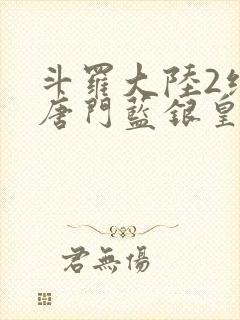 斗羅大陸2
唐門藍銀皇
君無傷